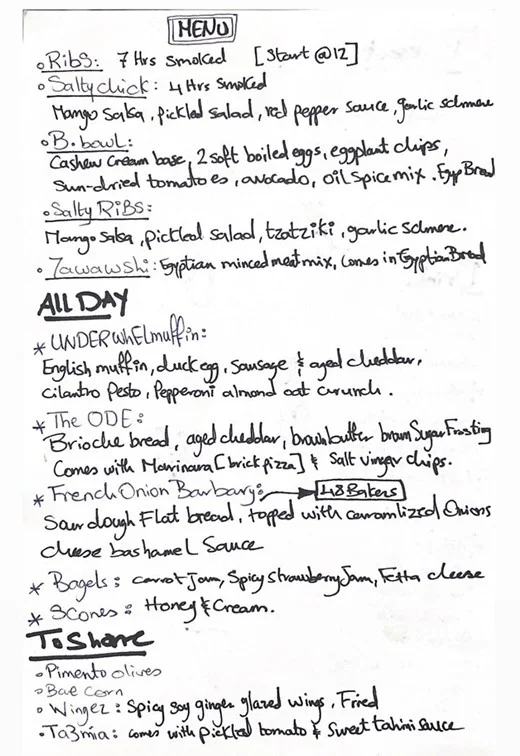 MENU
Ribs: 7 Hrs smoked [Start @12]
Salty chick: 4 Hrs smoked
Mango Salsa, pickled salad, red pepper sauce, garlic schmere
B.bowl:
Cashew Cream base, 2 soft boiled eggs, eggplant chips,
Sun-dried tomatoes, avocado, oil spice mix. Egyp Bread
Salty RiBS:
Mango Salsa, pickled salad, tzatziki, garlic schmere.
7awawshi: Egyptian minced meat mix, comes in Egyptian Bread
All DAY
* UNDERWhElmuffin:
English muffin, duck egg, Sausage & aged cheddar,
cilantro Pesto, Pepperoni almond oat crunch.
* The ODE:
Brioche bread, aged cheddar, brown butter brown Sugar Frosting
Comes with Marinara [brick pizza] & Salt vinegar chips.
* French Onion Barbary: → 48 Bakers
Sour dough Flat bread, topped with caramlized Onions
cheese bashamel Sauce
* Bagels: carrot Jam, Spicy Strawberry Jam, Fetta cheese
* Scones: Honey & Cream.
To Share
Pimento olives
Bae Corn
Wingez: Spicy soy ginger glazed wings, Fried
Ta3mia: comes with pickled tomato & Sweet tahini sauce